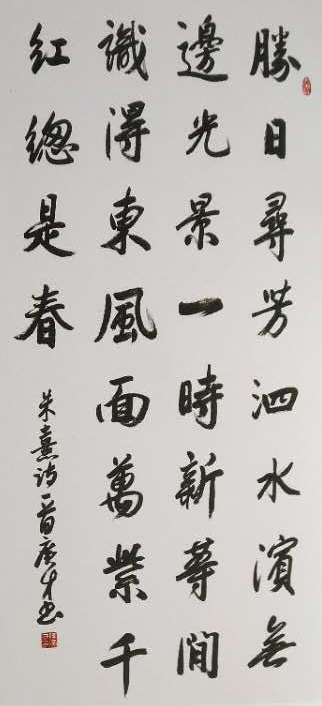 勝日尋芳泗水濱無
邊光景一時新等閒
識得東風面萬紫千
紅總是春
朱熹詩一首廣才書